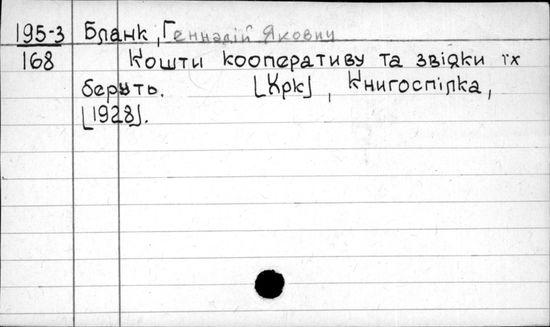 195-3 Бланк, Геннадій Якович
168 Кошти кооперативу та звідки їх
беруть. [Хрк], Книгоспілка,
[1928].